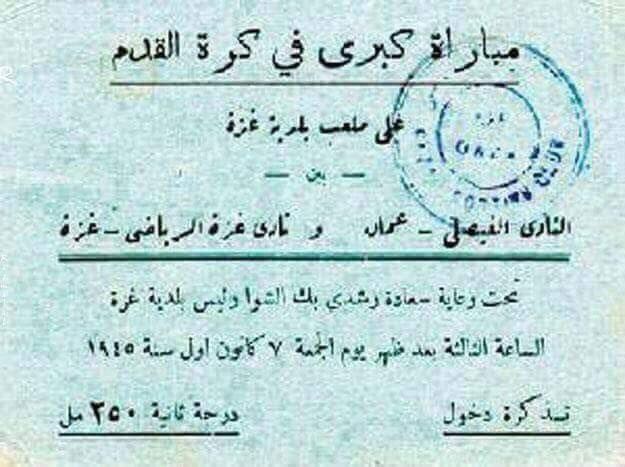 مباراة كبرى في كرة القدم
على ملعب بلدية غزة
— بين —
النادى الفيصلى - عمان و نادى غزة الرياضى - غزة
تحت رعاية سعادة رشدي بك الشوا رئيس بلدية غزة
الساعة الثالثة بعد ظهر يوم الجمعة ٧ كانون اول سنة ١٩٤٥
تذكرة دخول
درجة ثانية ٢٥٠ مل
غزة
GAZA
CLUB